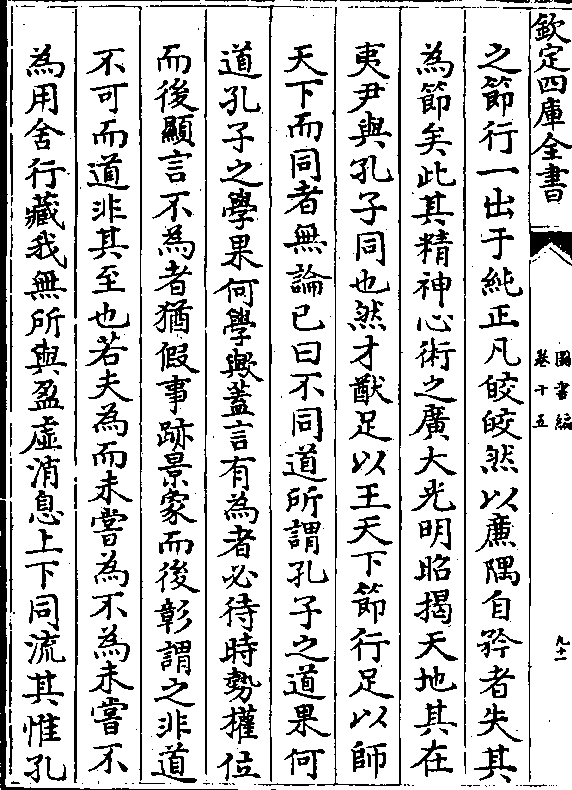 欽定四庫全書
圖書編
卷十五
九十一
之節行一出于純正凡皎皎然以廉隅自矜者失其
為節矣此其精神心術之廣大光明昭揭天地其在
夷尹與孔子同也然才猷足以王天下節行足以師
天下而同者無論已曰不同道所謂孔子之道果何
道孔子之學果何學歟蓋言有為者必待時勢權位
而後顯言不為者猶假事跡景象而後彰謂之非道
不可而道非其至也若夫為而未嘗為不為未嘗不
為用舍行藏我無所與盈虛消息上下同流其惟孔